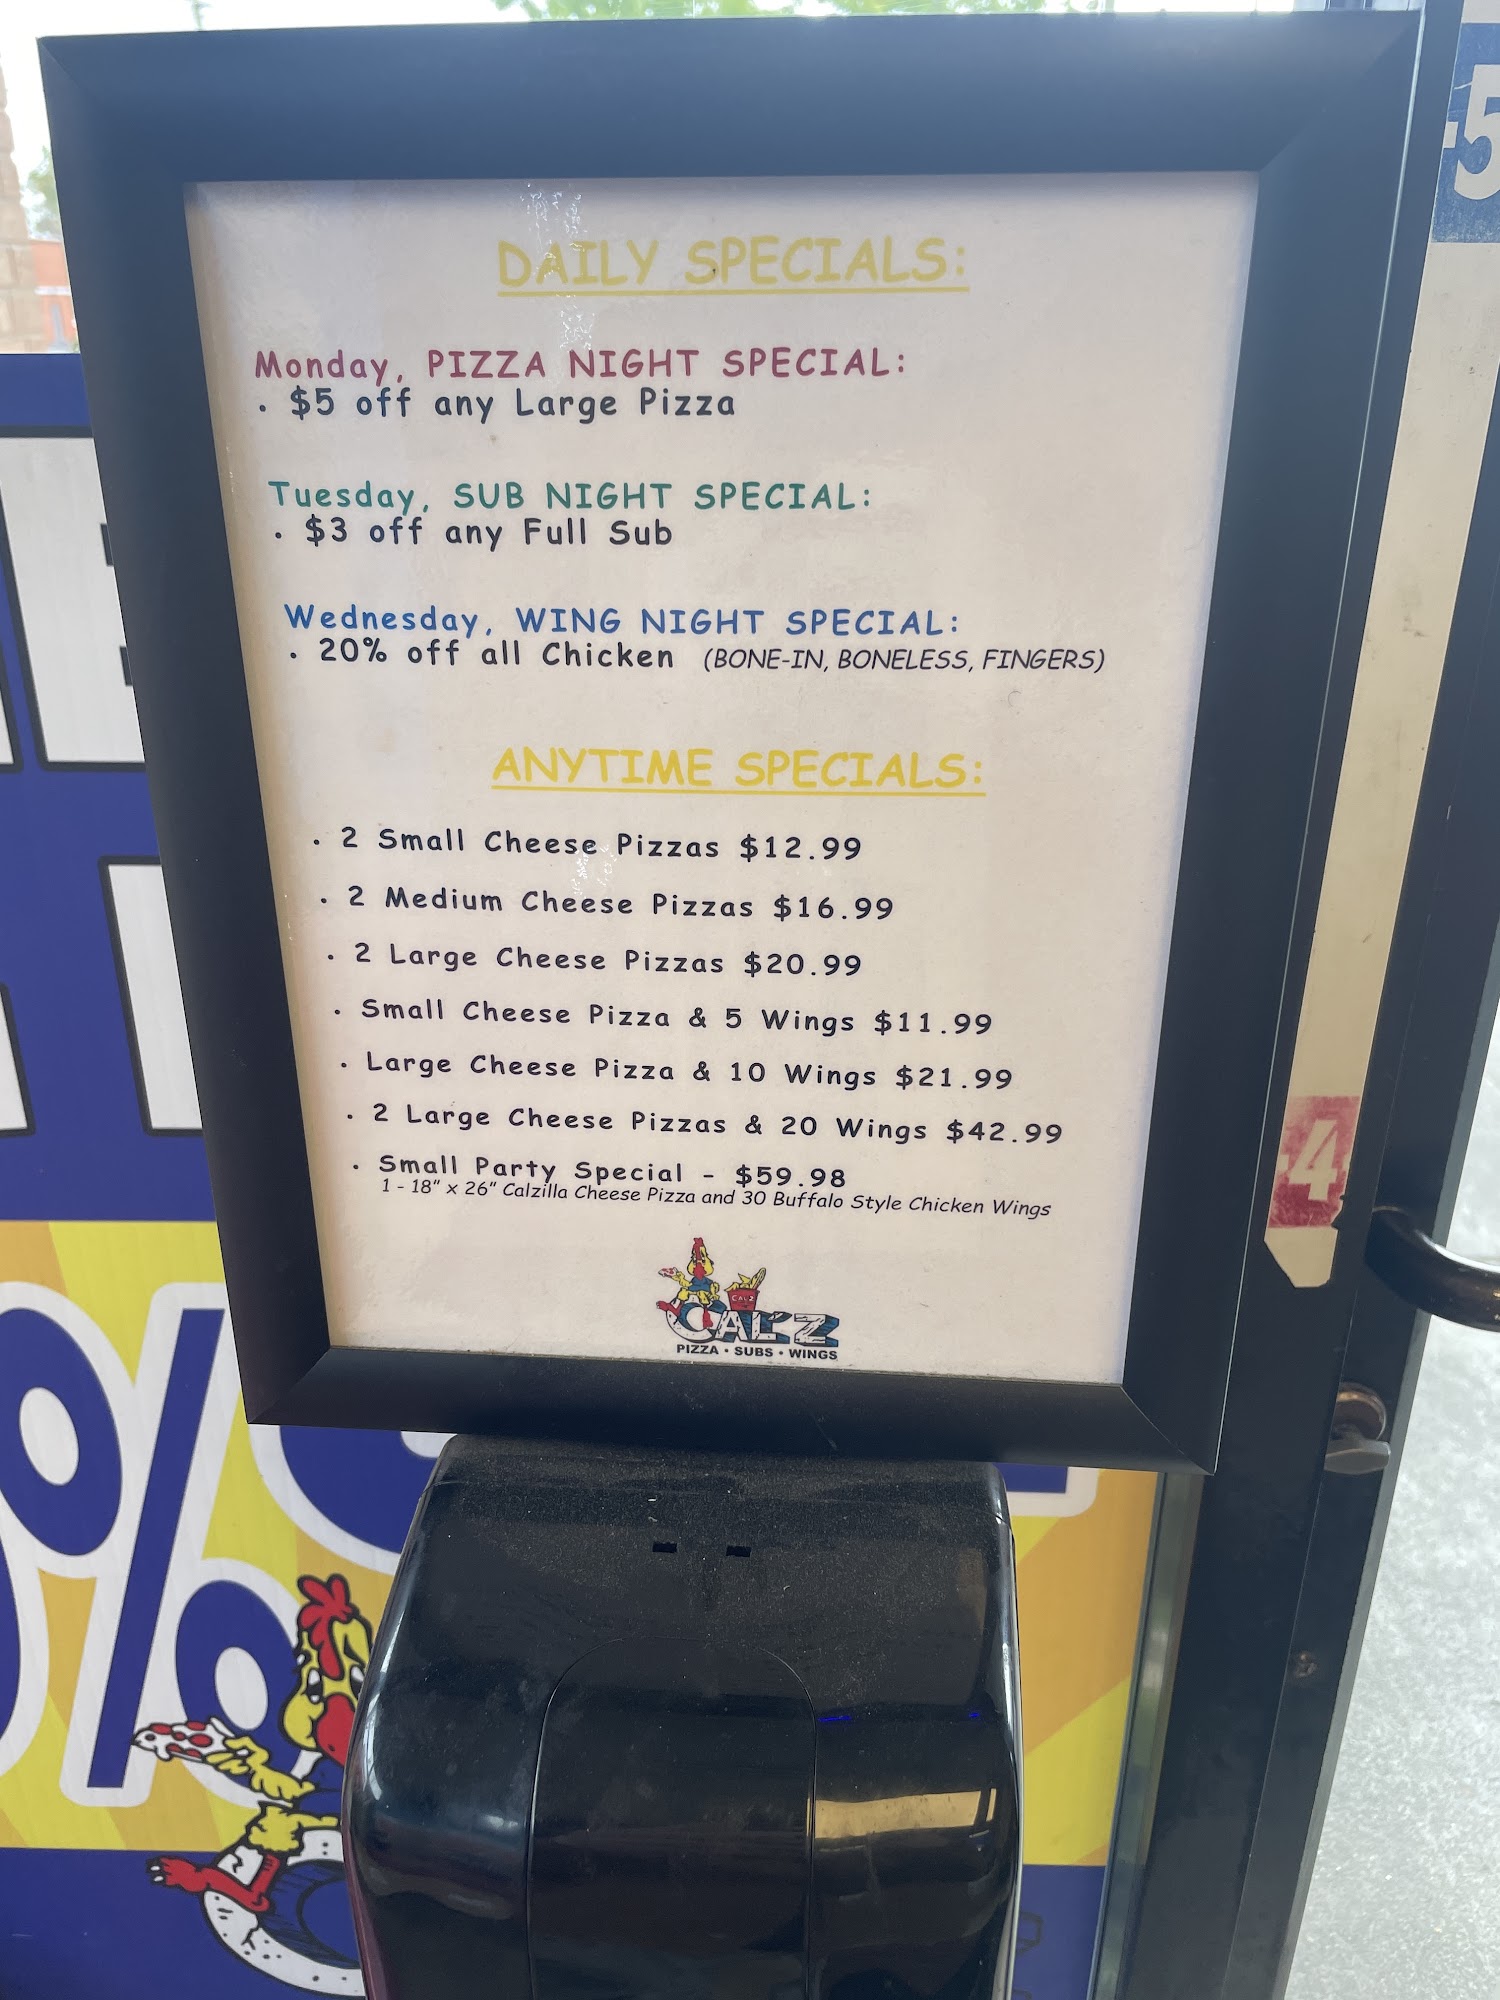 DAILY SPECIALS:
Monday, PIZZA NIGHT SPECIAL:
. $5 off any Large Pizza
Tuesday, SUB NIGHT SPECIAL:
. $3 off any Full Sub
Wednesday, WING NIGHT SPECIAL:
. 20% off all Chicken (BONE-IN, BONELESS, FINGERS)
ANYTIME SPECIALS:
. 2 Small Cheese Pizzas $12.99
. 2 Medium Cheese Pizzas $16.99
. 2 Large Cheese Pizzas $20.99
. Small Cheese Pizza & 5 Wings $11.99
. Large Cheese Pizza & 10 Wings $21.99
. 2 Large Cheese Pizzas & 20 Wings $42.99
. Small Party Special - $59.98
1 - 18" x 26" Calzilla Cheese Pizza and 30 Buffalo Style Chicken Wings
CAL'Z
CAL'Z
PIZZA • SUBS • WINGS
5
4
%